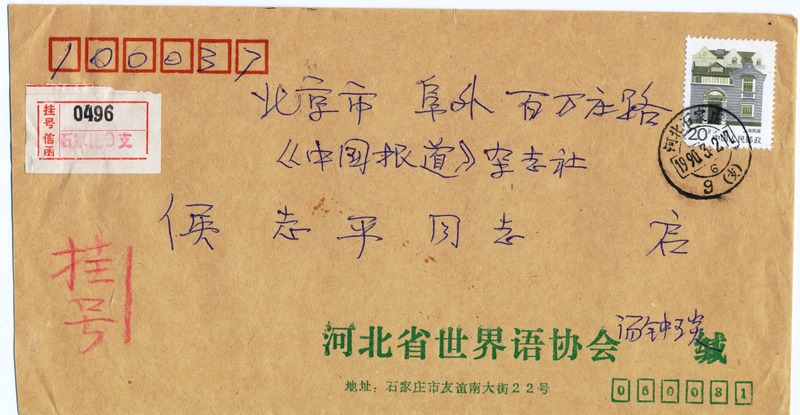 100037
挂号信函 0496
石家庄9支
20分 中国人民邮政
河北石家庄
北京市 阜外 百万庄路
《中国报道》杂志社
侯志平同志 启
挂号
河北省世界语协会 缄
地址：石家庄市友谊南大街22号
050081